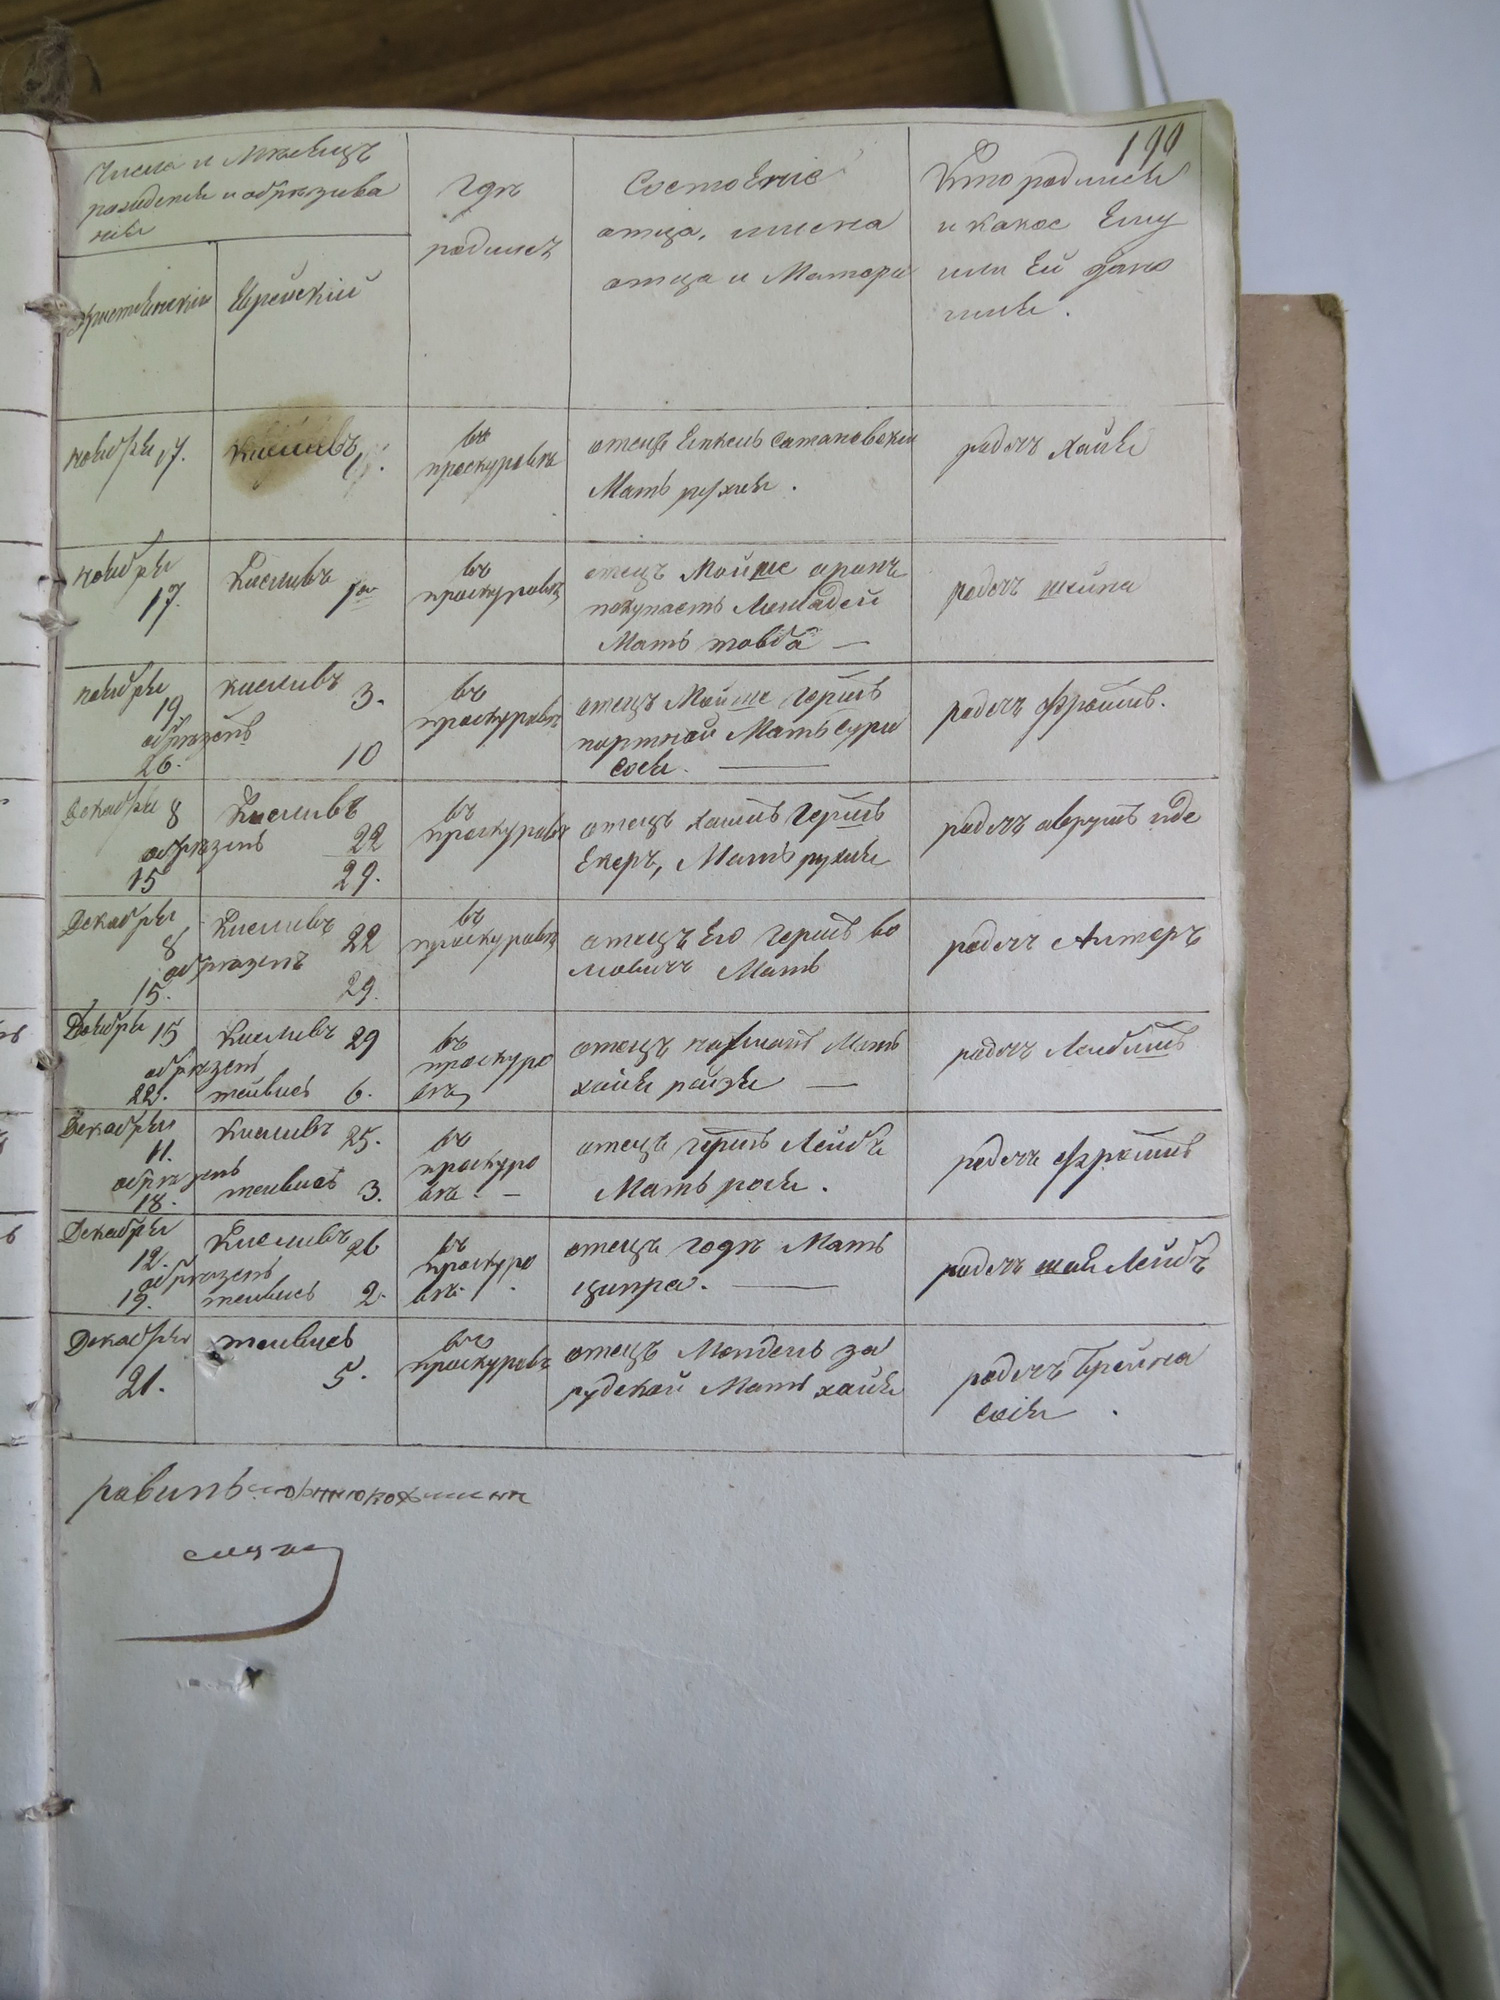 199
Числа и Мѣсяцъ
рождения и обрѣзыва
ния
Християнский
Еврейский
Гдѣ
родился
Состояние
отца, имена
отца и Матери
Кто родился
и какое Ему
или Ей дано
имя.
ноября 17.
Кисливъ
въ
проскуровѣ
отецъ Сатановский
Мать рухля.
родилъ Хайя
ноября
17.
Кисливъ
1го
въ
проскуровѣ
отецъ Мойше
покупаетъ Лошадей
Мать товба —
родилъ шейна
ноября
19
обрѣзенъ
26.
кисливъ 3.
10
въ
проскуровѣ
отецъ Мойше Гершъ
портной Мать сура
сося. —
родилъ Фроимъ.
Декабря 8
обрѣзенъ
15
Кисливъ
22
29.
въ
проскуровѣ
отецъ хаимъ Гершъ
Екеръ, Мать рухля
родилъ аврумъ иде
Декабря
8
обрѣзенъ
15.
Кисливъ
22
29.
въ
проскуровѣ
отецъ Его Гершъ во
Мать
родилъ Алтеръ
Декабря 15
обрѣзенъ
22.
Кисливъ 29
тейвисъ 6.
въ
проскуро
вѣ
отецъ нахманъ Мать
хайя райзя —
родилъ Лейбишъ
Декабря
11.
обрѣзенъ
18.
Кисливъ 25.
тейвисъ 3.
въ
проскуро
вѣ. —
отецъ гершъ Лейбъ
Мать рося.
родилъ Фроимъ
Декабря
12.
обрѣзенъ
19.
Кисливъ 26
тейвисъ 2.
въ
проскуро
вѣ.
отецъ Мать
ципра. —
родилъ шая Лейбъ
Декабря
21.
тейвисъ
5.
въ
проскуровѣ
отецъ Мендель за
рудской Мать хайя
родилъ Брейна
сося.
равинъ